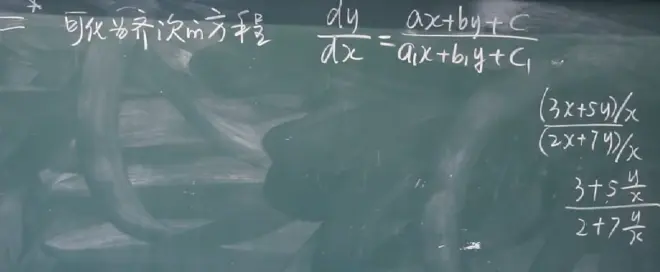 二* 可化为齐次的方程 dy/dx = (ax+by+c)/(a₁x+b₁y+c₁)
(3x+5y)/x
(2x+7y)/x
3+5 y/x
2+7 y/x